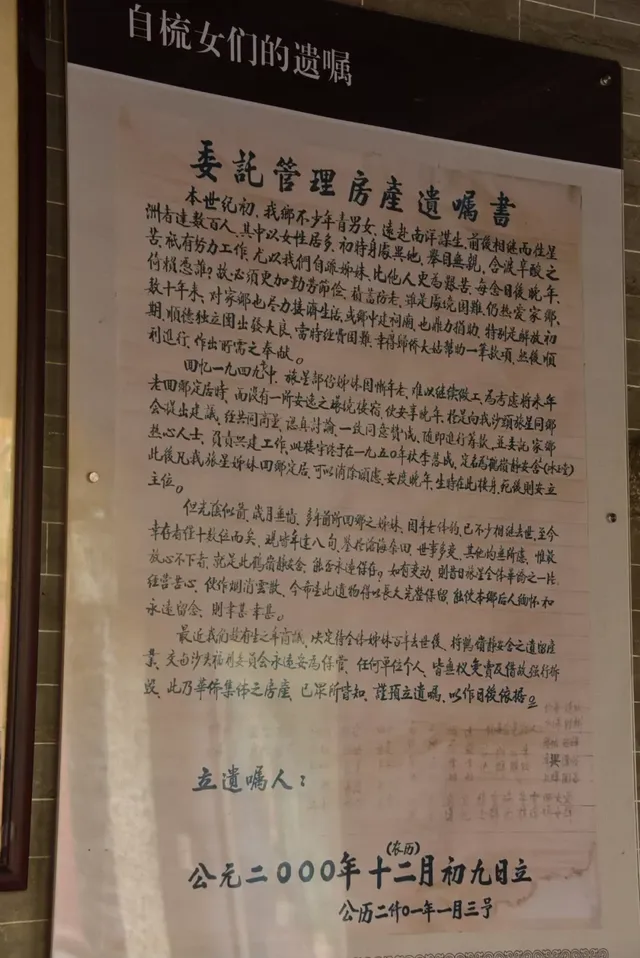 自梳女们的遗嘱
委託管理房產遺嘱書
本世纪初，我鄉不少年青男女，遠赴南洋謀生，前後相継而往星
洲者達数百人，其中以女性居多，初待身處異地，舉目無親，含淚辛酸之
苦，祇有努力工作，尤以我們自梳姊妹，比他人更為艱苦，每念日後晚年，
倚賴悉誰？故必須更加勤劳節儉，積蓄防老，雖是處境困難仍热爱家鄉，
数十年来，对家鄉也尽力接濟生活，或鄉中建祠廟，也鼎力捐助，特别是解放初
期，順德独立团出發大良，當時經费困難，幸得歸侨大姑幫助一筆款項，然後順
利進行，作出所需之奉献。
回忆一九四九年中，旅星部份姊妹因漸年老，难以继续做工，為考慮將来年
老回鄉定居時，而没有一所安适之环境棲宿，使安享晚年，於是向我沙頭旅星同鄉
会提出建議，经共同商量，認真討論，一致同意賛成，随即進行筹款，並委託家鄉
热心人士，負責兴建工作，此楼宇终于在一九五〇年秋季落成，定名為鶴嶺静安舍(冰玉堂)
此後凡我旅星姊妹回鄉定居，可以消除顾慮，安度晚年，生時在此棲身，死後則安立
主位。
但光陰似箭，歲月無情，多年前所回鄉之姊妹，因年老体弱，已不少相继去世，至今
幸存者僅十数位而矣，现皆年逹八旬，鉴於滄海桑田，世事多变，其他均無所慮，惟最
放心不下者，就是此鶴嶺静安舍，能否永遠保存。如有变动，則昔日旅星全体華侨之一片
经营苦心，便作烟消雲散，今希望此遺物得以長久完整保留，能使本鄉后人缅怀和
永遠留念，則幸甚幸甚。
最近我們趁有生之年商議，决定待全体姊妹百年去世後，將鶴嶺静安舍之遺留產
業，交由沙头福利委員会永遠妥為保管，任何單位个人，皆無权变賣及借故强行拆
毁，此乃華僑集体之房產，已眾所皆知，謹預立遺嘱，以作日後依據。
立遺嘱人：
(农历)
公元二000年十二月初九日立
公历二什0一年一月三号